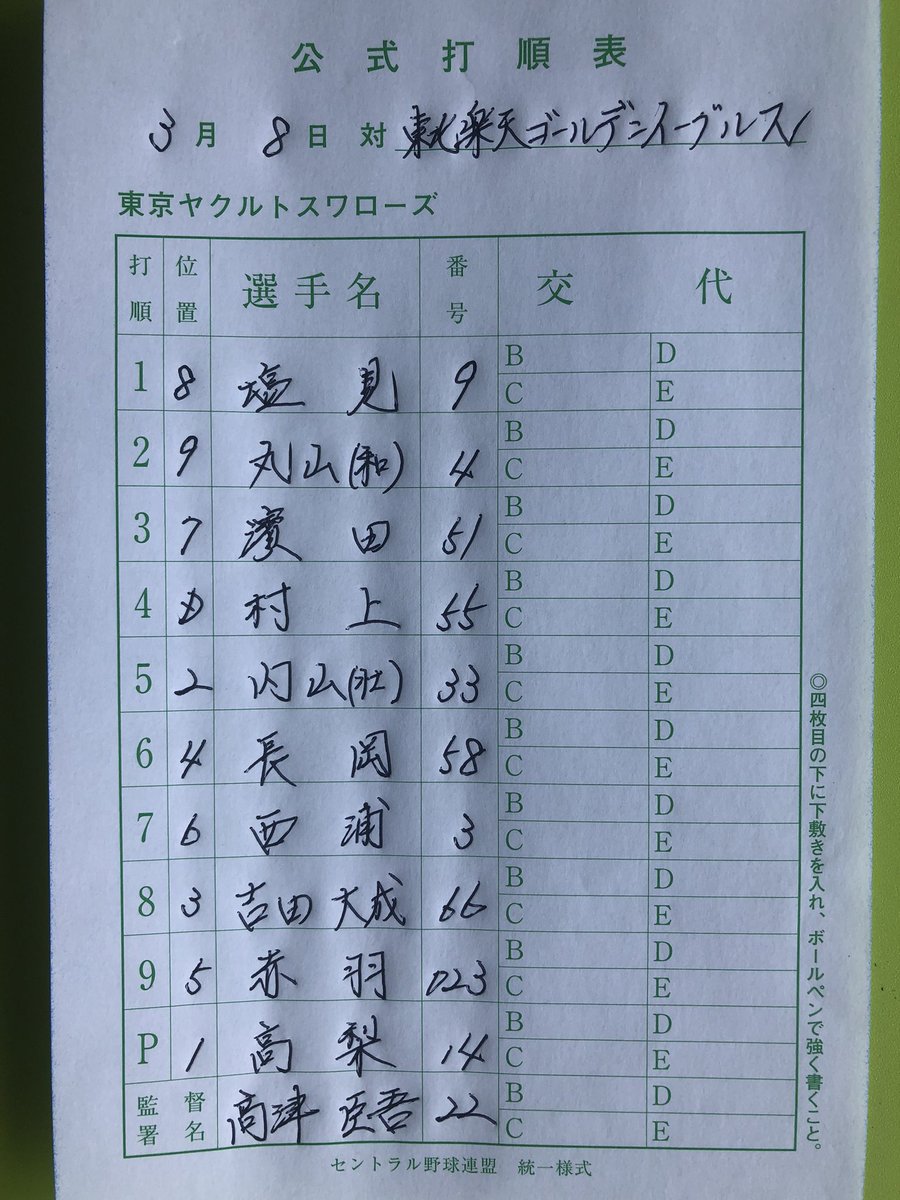 公式打順表
3月 8日 対 東北楽天ゴールデンイーグルス
東京ヤクルトスワローズ
打順 位置 選手名 番号 交代
1 8 塩見 9 B D
C E
2 9 丸山(和) 4 B D
C E
3 7 濱田 51 B D
C E
4 D 村上 55 B D
C E
5 2 内山(壮) 33 B D
C E
6 4 長岡 58 B D
C E
7 6 西浦 3 B D
C E
8 3 吉田大成 66 B D
C E
9 5 赤羽 023 B D
C E
P 1 高梨 14 B D
C E
監督署名 高津臣吾 22 B D
C E
セントラル野球連盟 統一様式
◎四枚目の下に下敷きを入れ、ボールペンで強く書くこと。